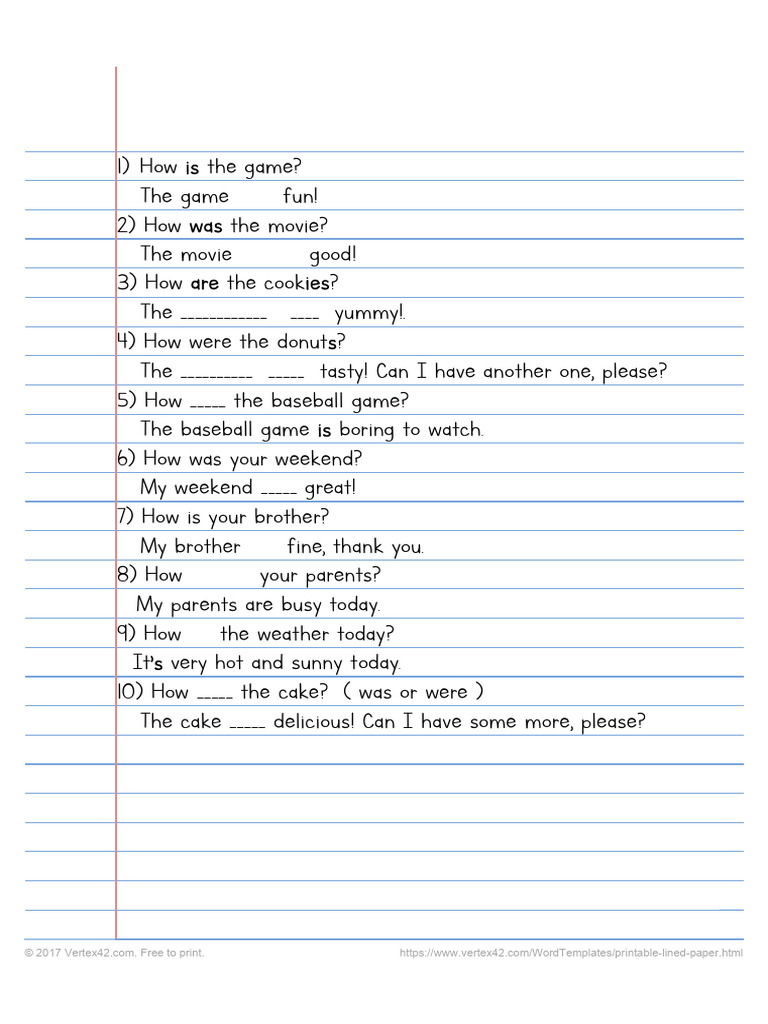 1) How is the game?
The game fun!
2) How was the movie?
The movie good!
3) How are the cookies?
The ____________ ____ yummy!.
4) How were the donuts?
The __________ _____ tasty! Can I have another one, please?
5) How _____ the baseball game?
The baseball game is boring to watch.
6) How was your weekend?
My weekend _____ great!
7) How is your brother?
My brother fine, thank you.
8) How your parents?
My parents are busy today.
9) How the weather today?
It's very hot and sunny today.
10) How _____ the cake? ( was or were )
The cake _____ delicious! Can I have some more, please?
© 2017 Vertex42.com. Free to print. https://www.vertex42.com/WordTemplates/printable-lined-paper.html